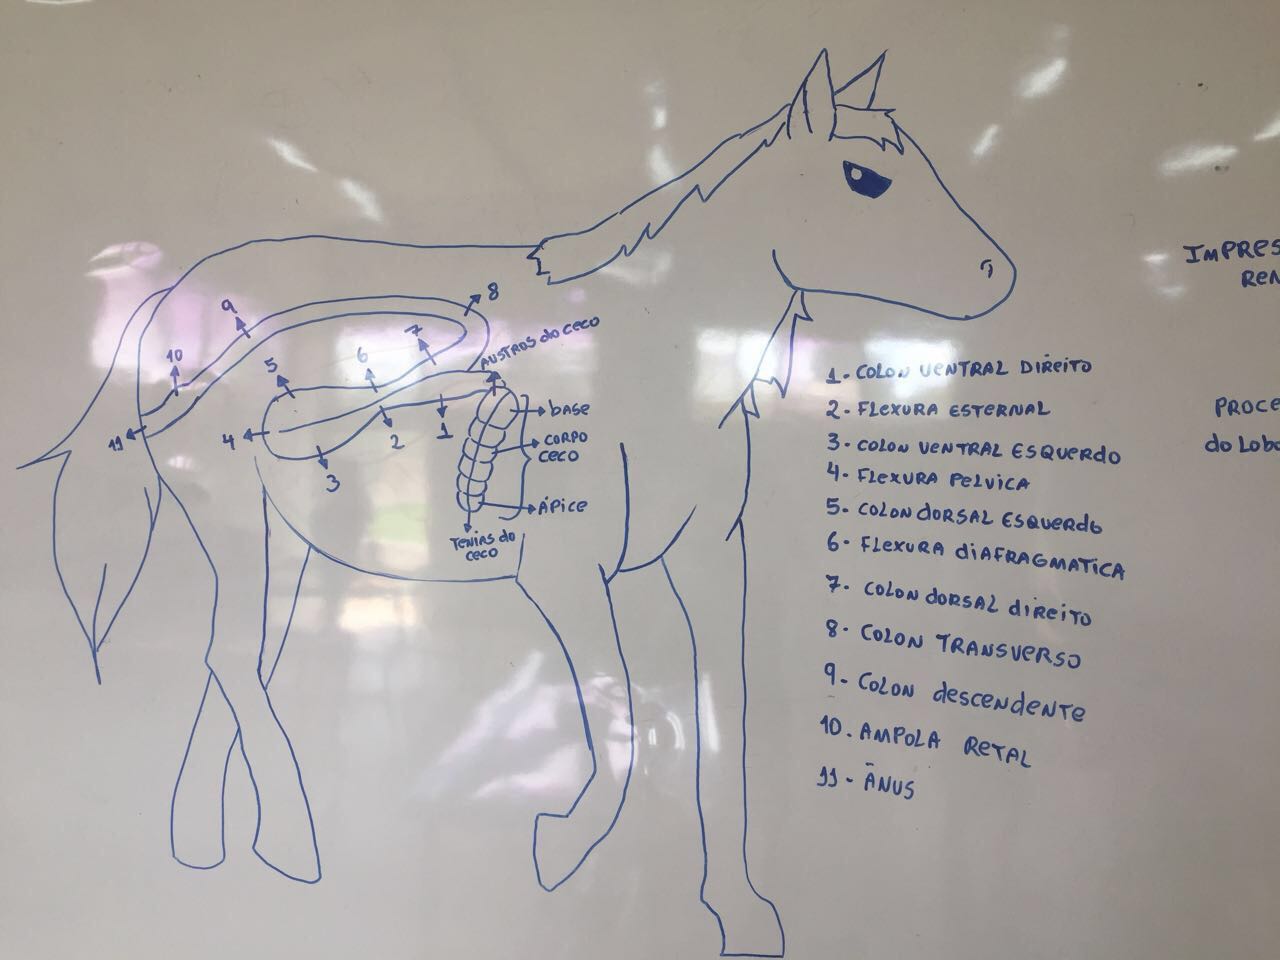 8
9
7
AUSTROS do CECO
10
6
5
base
11
4
2
1
CORPO
CECO
3
ÁPICE
TENIAS do
CECO
IMPRES
REN
1- COLON VENTRAL DIREITO
2- FLEXURA ESTERNAL
PROCE
3- COLON VENTRAL ESQUERDO
do Lobo
4- FLEXURA PELVICA
5- COLON DORSAL ESQUERDO
6- FLEXURA diAFRAGMATICA
7- COLON dORSAL direito
8- COLON TRANSVERSO
9- COLON descendente
10. AMPOLA RETAL
11- ÂNUS